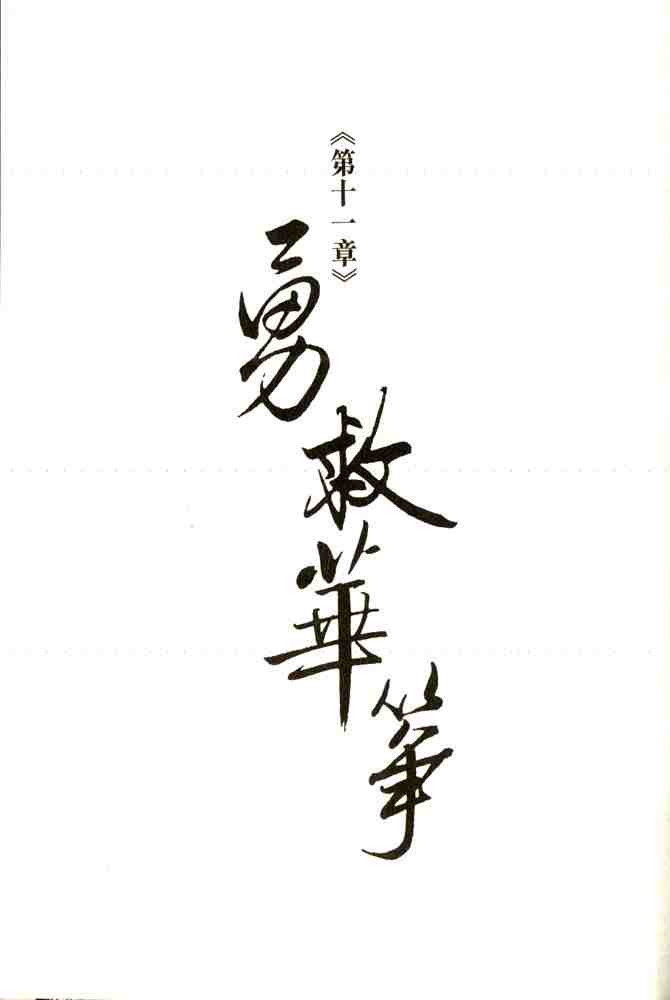 《第十一章》
勇救華箏